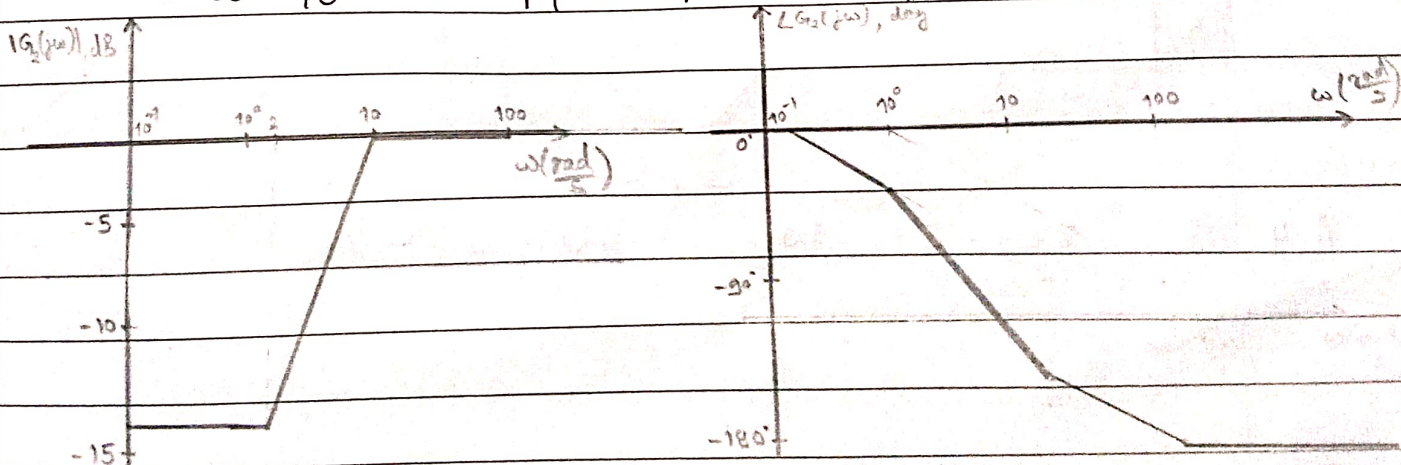 |G₂(jω)|, dB
10⁻¹ 10⁰ 2 10 100
ω(rad/s)
-5
-10
-15
∠G₂(jω), deg
10⁻¹ 10⁰ 10 100 ω(rad/s)
0°
-90°
-180°